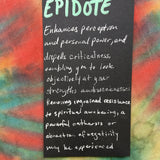 EPIDOTE
Enhances perception
and personal power, and
dispels criticalness,
enabling you to look
objectively at your
strengths and weaknesses
Removing ingrained resistance
to spiritual awakening, a
powerful catharsis or
of negativity
may be experienced